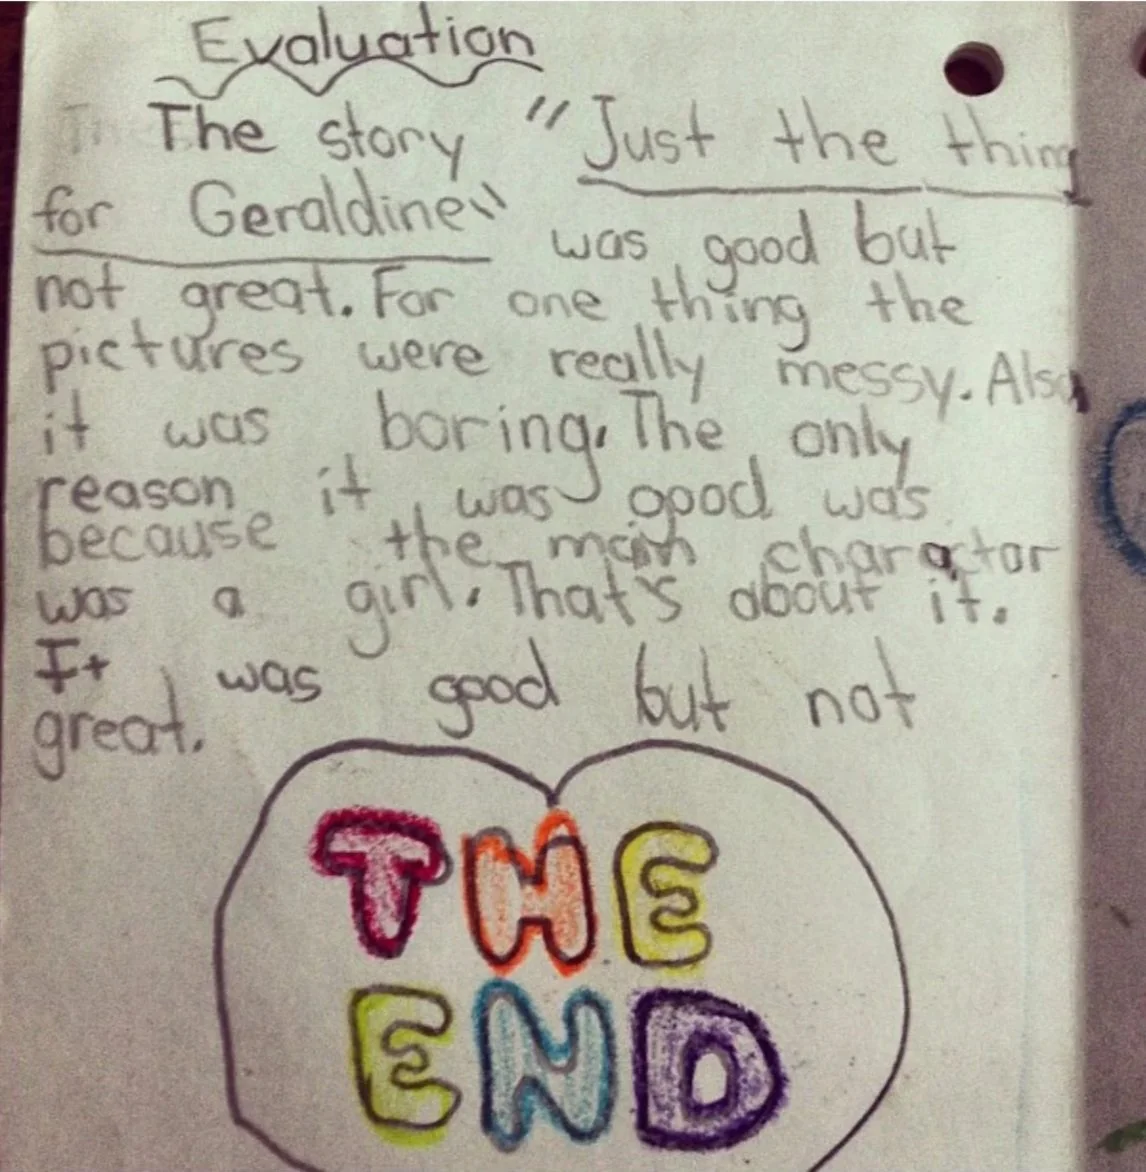 Evaluation
The story "Just the thing
for Geraldine" was good but
not great. For one thing the
pictures were really messy. Also
it was boring. The only
reason it was good was
because the main charactor
was a girl. That's about it.
It was good but not
great.
THE
END